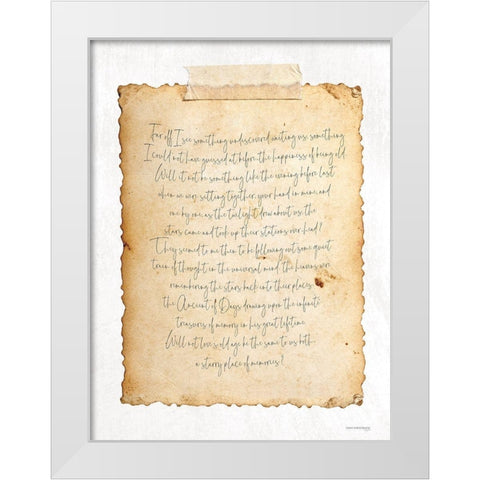 Far off I see something undiscovered waiting us, something
I could not have guessed at before, the happiness of being old.
Will it not be something like the evening before last
when we were sitting together, your hand in mine, and
one by one, as the twilight drew about us, the
stars came and took up their stations overhead?
They seemed to me then to be following out some quiet
train of thought in the universal mind; the heavens were
remembering the stars back into their places
the Ancient of Days drawing upon the infinite
treasures of memory in his great lifetime.
Will not love's old age be the same to us both
a starry place of memories?